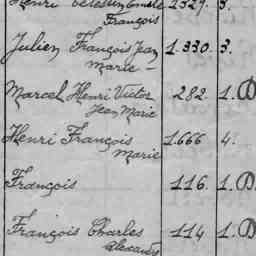 Henri Célestin Emile 1329. 3.
François
Julien François Jean 1.330. 3.
Marie -
Marcel Henri Victor 282. 1.D
Jean Marie
Henri François 1.666 4.
Marie
François 116. 1.D
François Charles 114 1.D
Alexandre